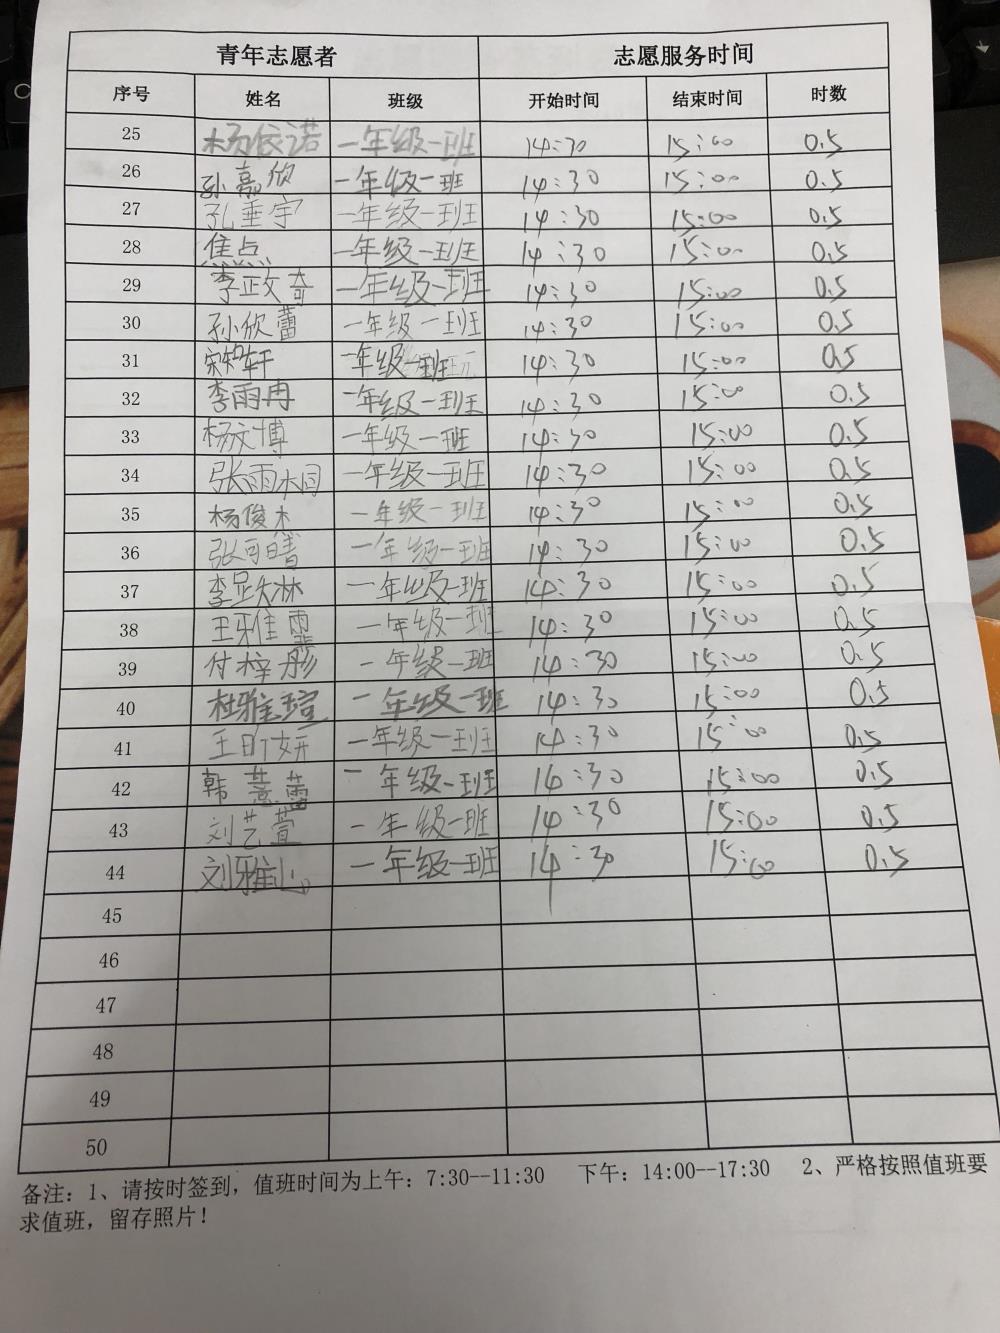 青年志愿者 志愿服务时间
序号 姓名 班级 开始时间 结束时间 时数
25 杨依诺 一年级一班 14:30 15:00 0.5
26 孙嘉欣 一年级一班 14:30 15:00 0.5
27 孔垂宇 一年级一班 14:30 15:00 0.5
28 焦点 一年级一班 14:30 15:00 0.5
29 李政奇 一年级一班 14:30 15:00 0.5
30 孙欣蕾 一年级一班 14:30 15:00 0.5
31 一年级一班 14:30 15:00 0.5
32 李雨冉 一年级一班 14:30 15:00 0.5
33 杨文博 一年级一班 14:30 15:00 0.5
34 张雨桐 一年级一班 14:30 15:00 0.5
35 杨俊杰 一年级一班 14:30 15:00 0.5
36 一年级一班 14:30 15:00 0.5
37 一年级一班 14:30 15:00 0.5
38 王雅霏 一年级一班 14:30 15:00 0.5
39 付梓彤 一年级一班 14:30 15:00 0.5
40 杜雅瑄 一年级一班 14:30 15:00 0.5
41 王昕妍 一年级一班 14:30 15:00 0.5
42 一年级一班 14:30 15:00 0.5
43 刘艺萱 一年级一班 14:30 15:00 0.5
44 一年级一班 14:30 15:00 0.5
45
46
47
48
49
50
备注：1、请按时签到，值班时间为上午：7:30--11:30 下午：14:00--17:30 2、严格按照值班要
求值班，留存照片！